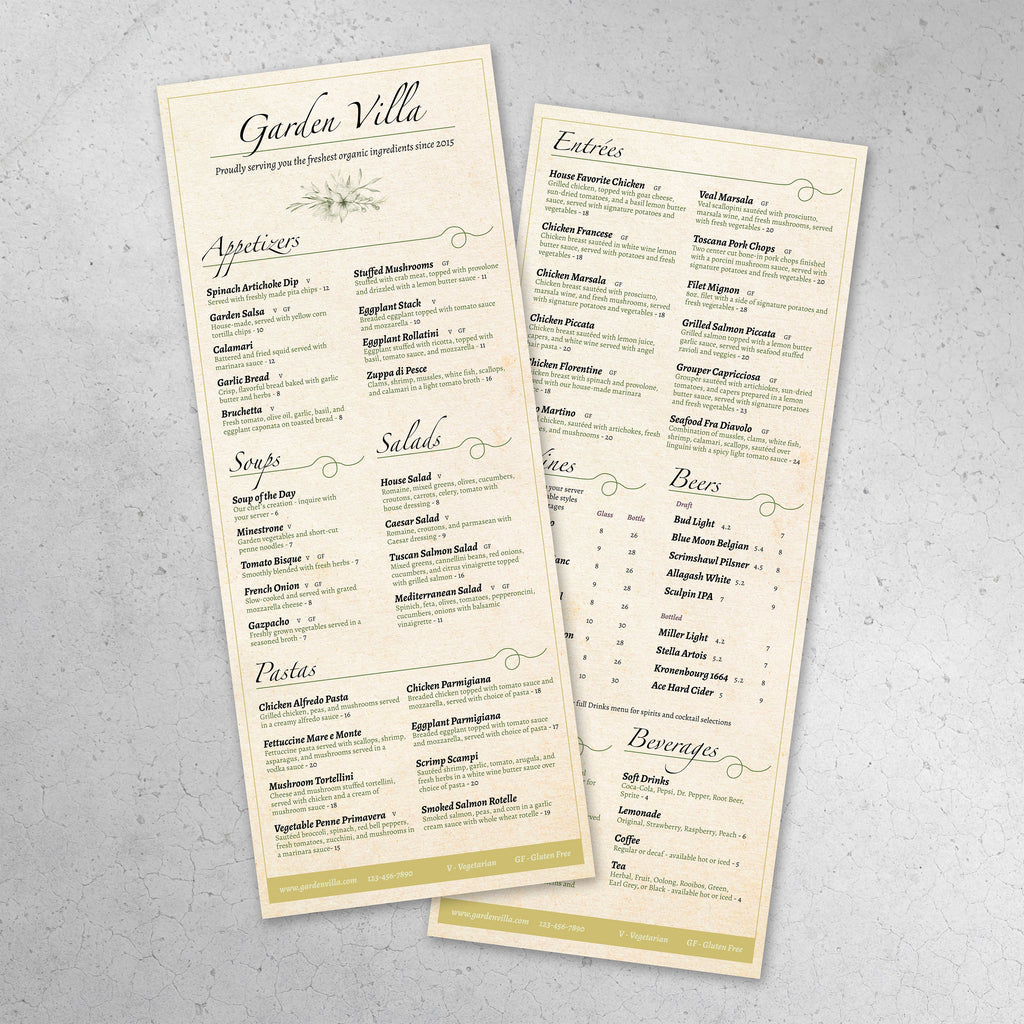 Garden Villa
Proudly serving you the freshest organic ingredients since 2015
Appetizers
Spinach Artichoke Dip V
Served with freshly made pita chips - 12
Garden Salsa V GF
House-made, served with yellow corn
tortilla chips - 10
Calamari
Battered and fried squid served with
marinara sauce - 12
Garlic Bread V
Crisp, flavorful bread baked with garlic
butter and herbs - 8
Bruchetta V
Fresh tomato, olive oil, garlic, basil, and
eggplant caponata on toasted bread - 8
Stuffed Mushrooms GF
Stuffed with crab meat, topped with provolone
and drizzled with a lemon butter sauce - 11
Eggplant Stack V
Breaded eggplant topped with tomato sauce
and mozzarella - 10
Eggplant Rollatini V GF
Eggplant stuffed with ricotta, topped with
basil, tomato sauce, and mozzarella - 11
Zuppa di Pesce
Clams, shrimp, mussles, white fish, scallops,
and calamari in a light tomato broth - 16
Soups
Soup of the Day
Our chef's creation - inquire with
your server - 6
Minestrone V
Garden vegetables and short-cut
penne noodles - 7
Tomato Bisque V GF
Smoothly blended with fresh herbs - 7
French Onion V GF
Slow-cooked and served with grated
mozzarella cheese - 8
Gazpacho V GF
Freshly grown vegetables served in a
seasoned broth - 7
Salads
House Salad V
Romaine, mixed greens, olives, cucumbers,
croutons, carrots, celery, tomato with
house dressing - 8
Caesar Salad V
Romaine, croutons, and parmasean with
Caesar dressing - 9
Tuscan Salmon Salad GF
Mixed greens, cannellini beans, red onions,
cucumbers, and citrus vinaigrette topped
with grilled salmon - 16
Mediterranean Salad V GF
Spinich, feta, olives, tomatoes, pepperoncini,
cucumbers, onions with balsamic
vinaigrette - 11
Pastas
Chicken Alfredo Pasta
Grilled chicken, peas, and mushrooms served
in a creamy alfredo sauce - 16
Fettuccine Mare e Monte
Fettuccine pasta served with scallops, shrimp,
asparagus, and mushrooms served in a
vodka sauce - 20
Mushroom Tortellini
Cheese and mushroom stuffed tortellini,
served with chicken and a cream of
mushroom sauce - 18
Vegetable Penne Primavera V
Sautéed broccoli, spinach, red bell peppers,
fresh tomatoes, zucchini, and mushrooms in
a marinara sauce- 15
Chicken Parmigiana
Breaded chicken topped with tomato sauce and
mozzarella, served with choice of pasta - 18
Eggplant Parmigiana
Breaded eggplant topped with tomato sauce
and mozzarella, served with choice of pasta - 17
Scrimp Scampi
Sautéed shrimp, garlic, tomato, arugula, and
fresh herbs in a white wine butter sauce over
choice of pasta - 20
Smoked Salmon Rotelle
Smoked salmon, peas, and corn in a garlic
cream sauce with whole wheat rotelle - 19
www.gardenvilla.com 123-456-7890 V - Vegetarian GF - Gluten Free
Entrées
House Favorite Chicken GF
Grilled chicken, topped with goat cheese,
sun-dried tomatoes, and a basil lemon butter
sauce, served with signature potatoes and
vegetables - 18
Chicken Francese GF
Chicken breast sautéed in white wine lemon
butter sauce, served with potatoes and fresh
vegetables - 18
Chicken Marsala GF
Chicken breast sautéed with prosciutto,
marsala wine, and fresh mushrooms, served
with signature potatoes and vegetables - 18
Chicken Piccata
Chicken breast sautéed with lemon juice,
capers, and white wine served with angel
hair pasta - 20
Chicken Florentine GF
chicken breast with spinach and provolone,
served with our house-made marinara
- 18
o Martino GF
chicken, sautéed with artichokes, fresh
es, and mushrooms - 20
Veal Marsala GF
Veal scallopini sautéed with prosciutto,
marsala wine, and fresh mushrooms, served
with fresh vegetables - 20
Toscana Pork Chops GF
Two center cut bone-in pork chops finished
with a porcini mushroom sauce, served with
signature potatoes and fresh vegetables - 20
Filet Mignon GF
8oz. filet with a side of signature potatoes and
fresh vegetables - 28
Grilled Salmon Piccata GF
Grilled salmon topped with a lemon butter
garlic sauce, served with seafood stuffed
ravioli and veggies - 20
Grouper Capricciosa GF
Grouper sautéed with artichokes, sun-dried
tomatoes, and capers prepared in a lemon
butter sauce, served with signature potatoes
and fresh vegetables - 23
Seafood Fra Diavolo GF
Combination of mussles, clams, white fish,
shrimp, calamari, scallops, sautéed over
linguini with a spicy light tomato sauce - 24
ines
your server
able styles
tages
Glass Bottle
o 8 26
9 28
anc 8 26
9 28
l 8 26
10 30
on 9 28
8 26
10 30
Beers
Draft
Bud Light 4.2 7
Blue Moon Belgian 5.4 8
Scrimshawl Pilsner 4.5 8
Allagash White 5.2 8
Sculpin IPA 7 9
Bottled
Miller Light 4.2 7
Stella Artois 5.2 7
Kronenbourg 1664 5.2 8
Ace Hard Cider 5 9
full Drinks menu for spirits and cocktail selections
Beverages
Soft Drinks
Coca-Cola, Pepsi, Dr. Pepper, Root Beer,
Sprite - 4
Lemonade
Original, Strawberry, Raspberry, Peach - 6
Coffee
Regular or decaf - available hot or iced - 5
Tea
Herbal, Fruit, Oolong, Rooibos, Green,
Earl Grey, or Black - available hot or iced - 4
www.gardenvilla.com 123-456-7890 V - Vegetarian GF - Gluten Free